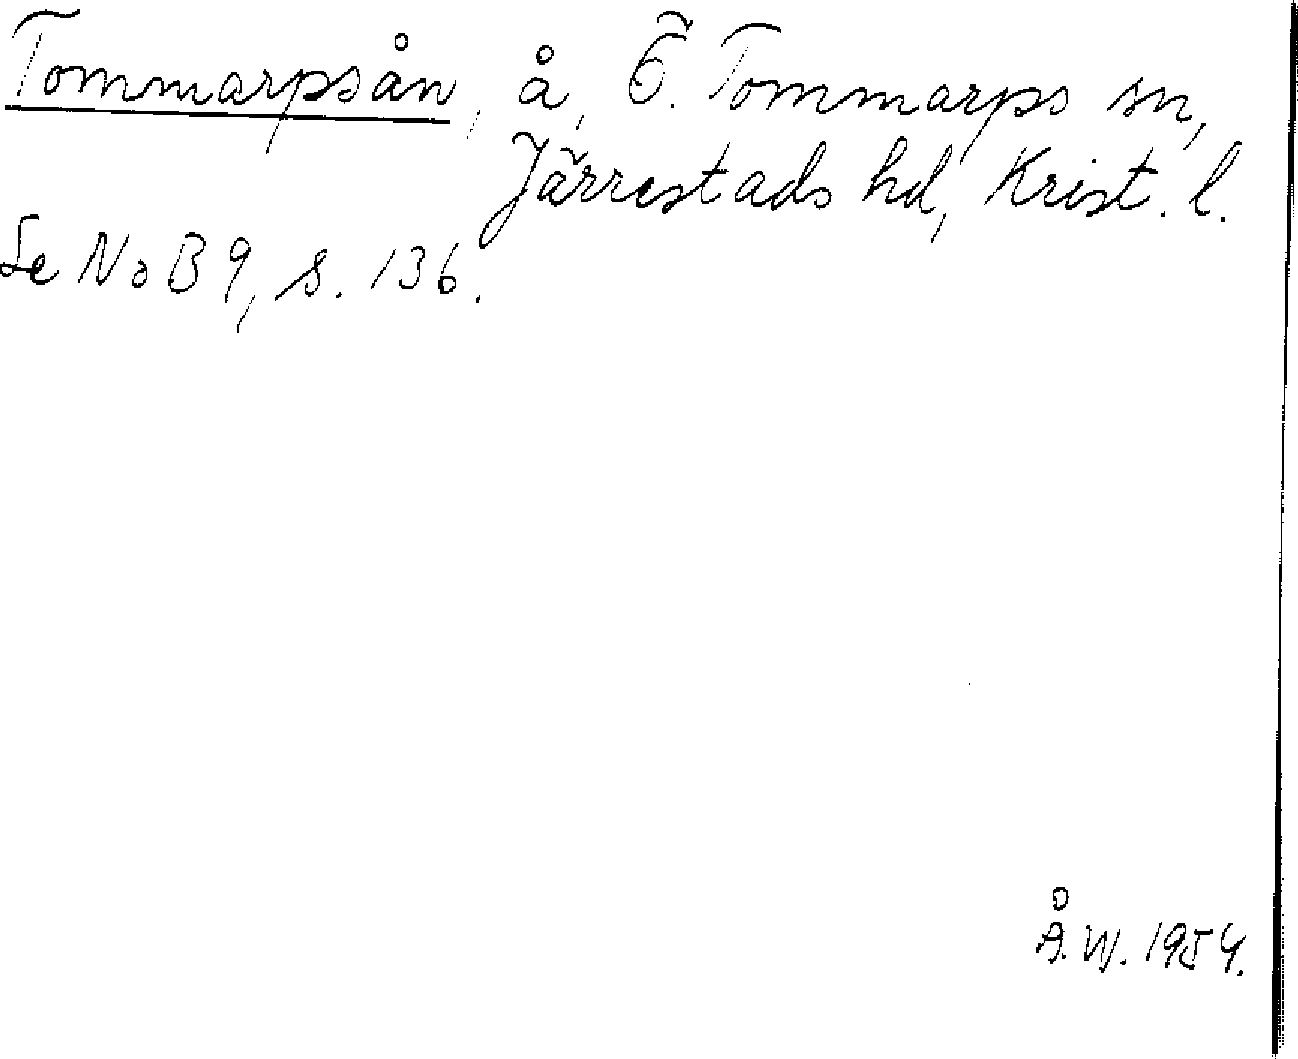 Tommarpsån, å, Ö. Tommarps sn,
Järrestads hd, Krist. l.
Se NoB 9, s. 136.
Å.W. 1954.